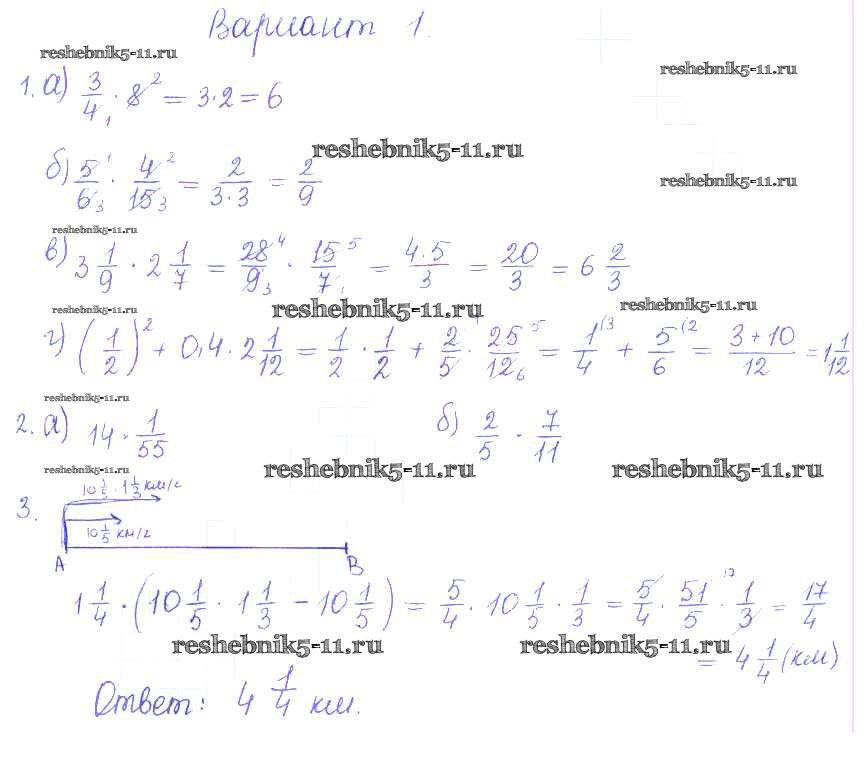 Вариант 1.
reshebnik5-11.ru
reshebnik5-11.ru
1. а) 3/4 · 8 = 3·2 = 6
reshebnik5-11.ru
б) 5/6 · 4/15 = 2/(3·3) = 2/9
reshebnik5-11.ru
reshebnik5-11.ru
в) 3 1/9 · 2 1/7 = 28/9 · 15/7 = (4·5)/3 = 20/3 = 6 2/3
reshebnik5-11.ru
reshebnik5-11.ru
reshebnik5-11.ru
г) (1/2)² + 0,4 · 2 1/12 = 1/2 · 1/2 + 2/5 · 25/12 = 1/4 + 5/6 = (3+10)/12 = 1 1/12
reshebnik5-11.ru
2. а) 14 · 1/55 б) 2/5 · 7/11
reshebnik5-11.ru
reshebnik5-11.ru
reshebnik5-11.ru
3. 10 1/5 · 1 1/3 км/г
10 1/5 км/г
А В
1 1/4 · (10 1/5 · 1 1/3 − 10 1/5) = 5/4 · 10 1/5 · 1/3 = 5/4 · 51/5 · 1/3 = 17/4
reshebnik5-11.ru
reshebnik5-11.ru
= 4 1/4 (км)
Ответ: 4 1/4 км.